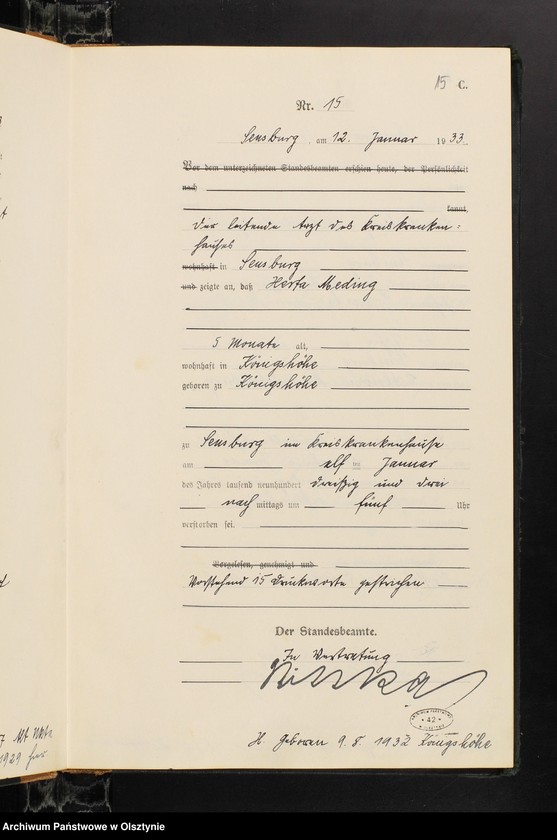 15 C.
Nr. 15
Sensburg, am 12. Januar 1933.
Vor dem unterzeichneten Standesbeamten erschien heute, der Persönlichkeit
nach
kannt,
der leitende Arzt des Kreiskranken=
hauses
wohnhaft in Sensburg
und zeigte an, daß Herta Meding
5 Monate alt,
wohnhaft in Königshöhe
geboren zu Königshöhe
zu Sensburg im Kreiskrankenhause
am elf ten Januar
des Jahres tausend neunhundert dreißig und drei
nach mittags um fünf Uhr
verstorben sei.
Vorgelesen, genehmigt und
Vorstehend 15 Druckworte gestrichen
Der Standesbeamte.
In Vertretung
42
H. Geboren 9. 8. 1932 Königshöhe
1929
Archiwum Państwowe w Olsztynie